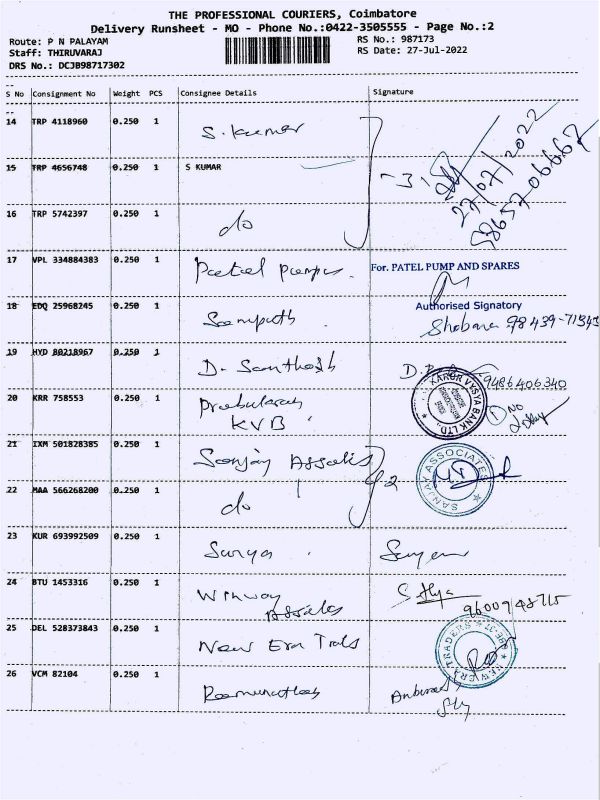 THE PROFESSIONAL COURIERS, Coimbatore
Delivery Runsheet - MO - Phone No.:0422-3505555 - Page No.:2
Route: P N PALAYAM RS No.: 987173
Staff: THIRUVARAJ RS Date: 27-Jul-2022
DRS No.: DCJB98717302
S No Consignment No Weight PCS Consignee Details Signature
14 TRP 4118960 0.250 1 S. Kumar
27/07/2022
15 TRP 4656748 0.250 1 S KUMAR
16 TRP 5742397 0.250 1 do
17 VPL 334884383 0.250 1 Patel pumps. For. PATEL PUMP AND SPARES
Authorised Signatory
18 EDQ 25968245 0.250 1 Sampath Shobana
19 HYD 80218967 0.250 1 D. Santhosh 9486406340
20 KRR 758553 0.250 1 Prabakaran KARUR VYSYA BANK LTD.
KVB
21 IXM 501828385 0.250 1 Sanjay SANJAY ASSOCIATES
22 MAA 566268200 0.250 1 do
23 KUR 693992509 0.250 1 Surya
24 BTU 1453316 0.250 1 Winway
25 DEL 528373843 0.250 1 New Era NEW ERA TRADERS
26 VCM 82104 0.250 1